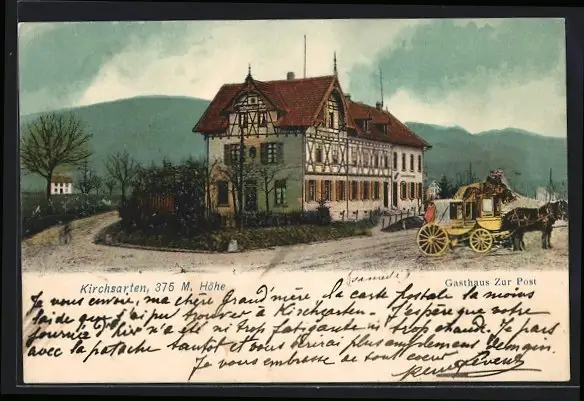 Kirchsarten, 375 M. Höhe
Gasthaus Zur Post
samedi
Je vous envoie, ma chère Grand'mère, la carte postale la moins
laide que j'ai pu trouver à Kirchsarten. J'espère que votre
journée d'hier n'a été ni trop fatigante ni trop chaude. Je pars
avec la patache tantôt et vous écrirai plus amplement demain.
Je vous embrasse de tout cœur